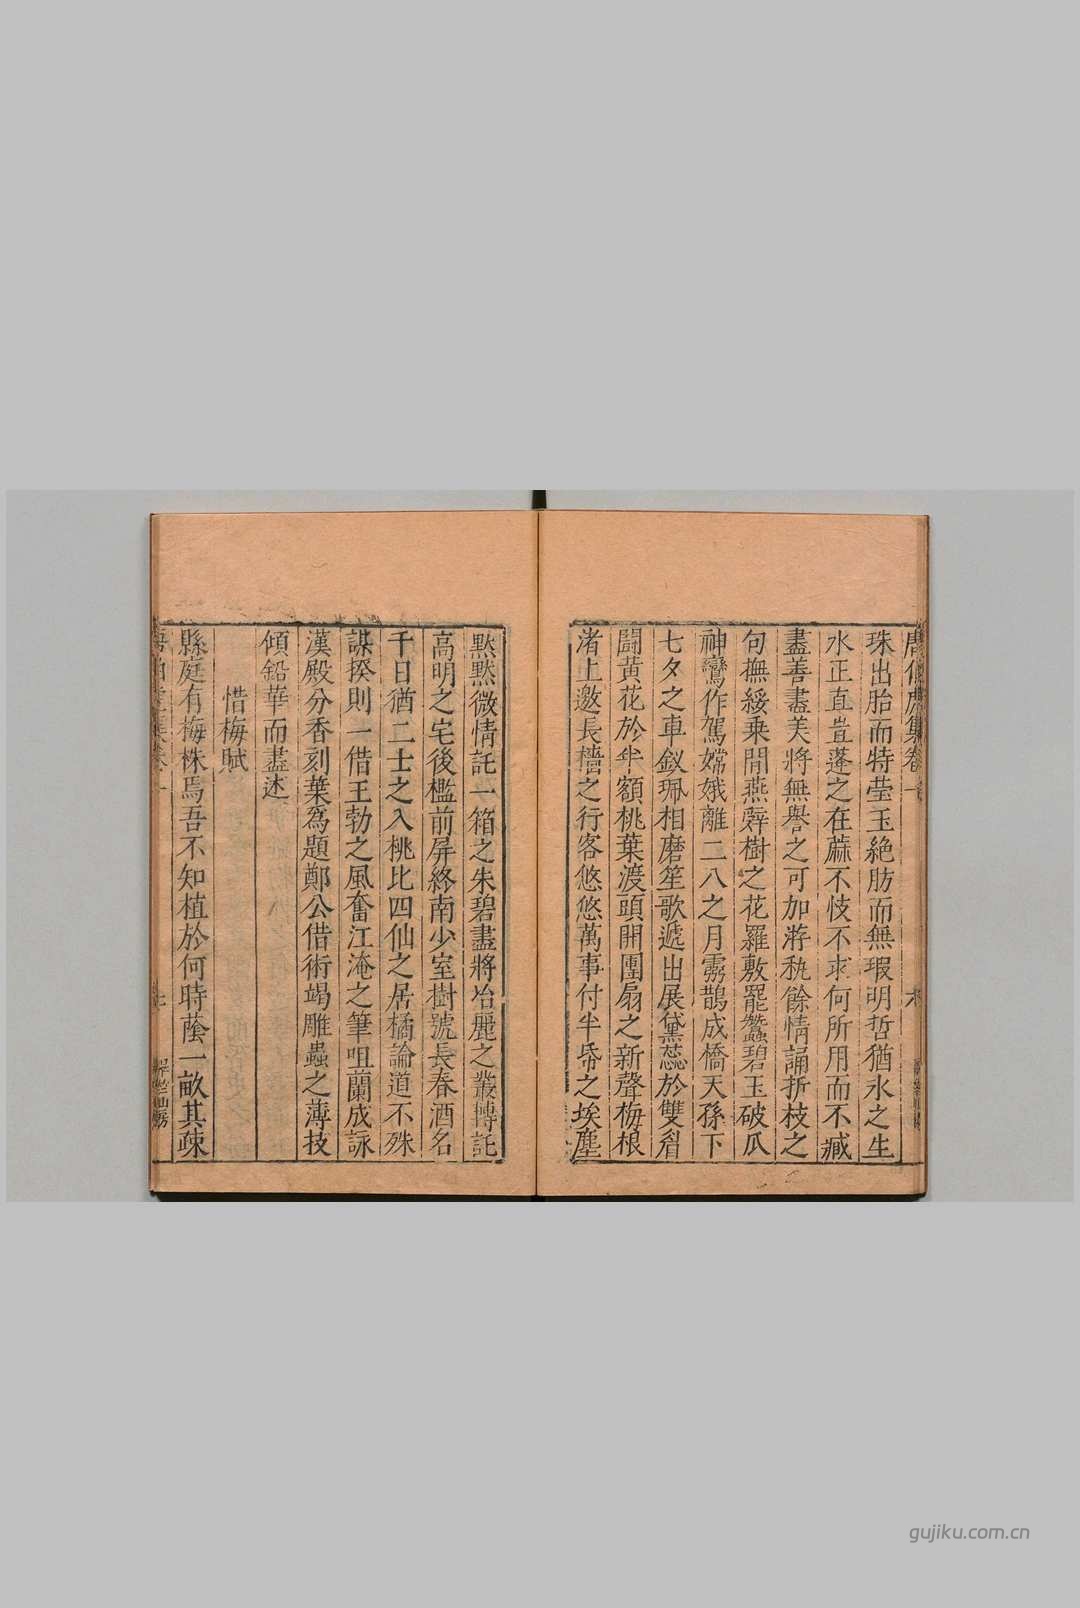 珠出胎而特瑩玉絶肪而無瑕明哲猶水之生
水正直豈蓬之在蔴不忮不求何所用而不臧
盡善盡美將無譽之可加游秇餘情誦折枝之
句撫綏乗閒燕辤樹之花羅敷罷蠶碧玉破瓜
神鸞作駕嫦娥離二八之月雱鵲成橋天孫下
七夕之車釵珮相磨笙歌遞出展黛蕊於雙眉
鬪黄花於半額桃葉渡頭開團扇之新聲梅根
渚上邀長檣之行客悠悠萬事付半帋之埃塵
黙黙微情託一箱之朱碧盡將冶麗之叢轉託
高明之宅後檻前屏終南少室樹號長春酒名
千日猶二士之入桃比四仙之居橘論道不殊
謀揆則一借王勃之風奮江淹之筆咀蘭成詠
漢殿分香刻葉爲題鄭公借術竭雕蟲之薄技
傾鉛華而盡述
惜梅賦
縣庭有梅株焉吾不知植於何時蔭一畝其疎
gujiku.com.cn